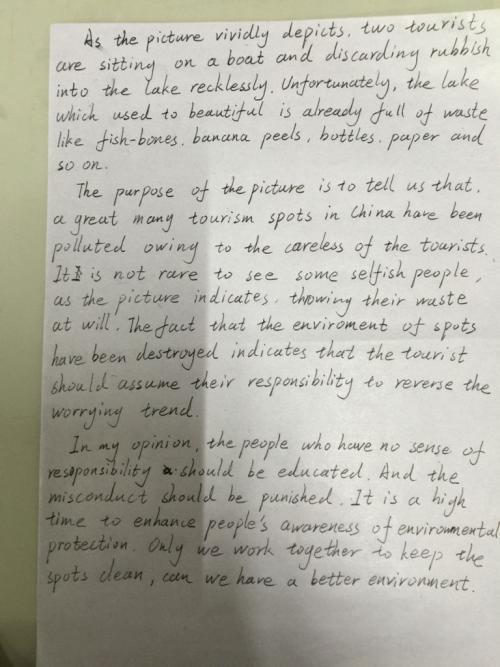 As the picture vividly depicts, two tourists
are sitting on a boat and discarding rubbish
into the lake recklessly. Unfortunately, the lake
which used to beautiful is already full of waste
like fish-bones, banana peels, bottles, paper and
so on.
The purpose of the picture is to tell us that,
a great many tourism spots in China have been
polluted owing to the careless of the tourists.
It is not rare to see some selfish people,
as the picture indicates, throwing their waste
at will. The fact that the enviroment of spots
have been destroyed indicates that the tourist
should assume their responsibility to reverse the
worrying trend.
In my opinion, the people who have no sense of
responsibility should be educated. And the
misconduct should be punished. It is a high
time to enhance people's awareness of environmental
protection. Only we work together to keep the
spots clean, can we have a better environment.